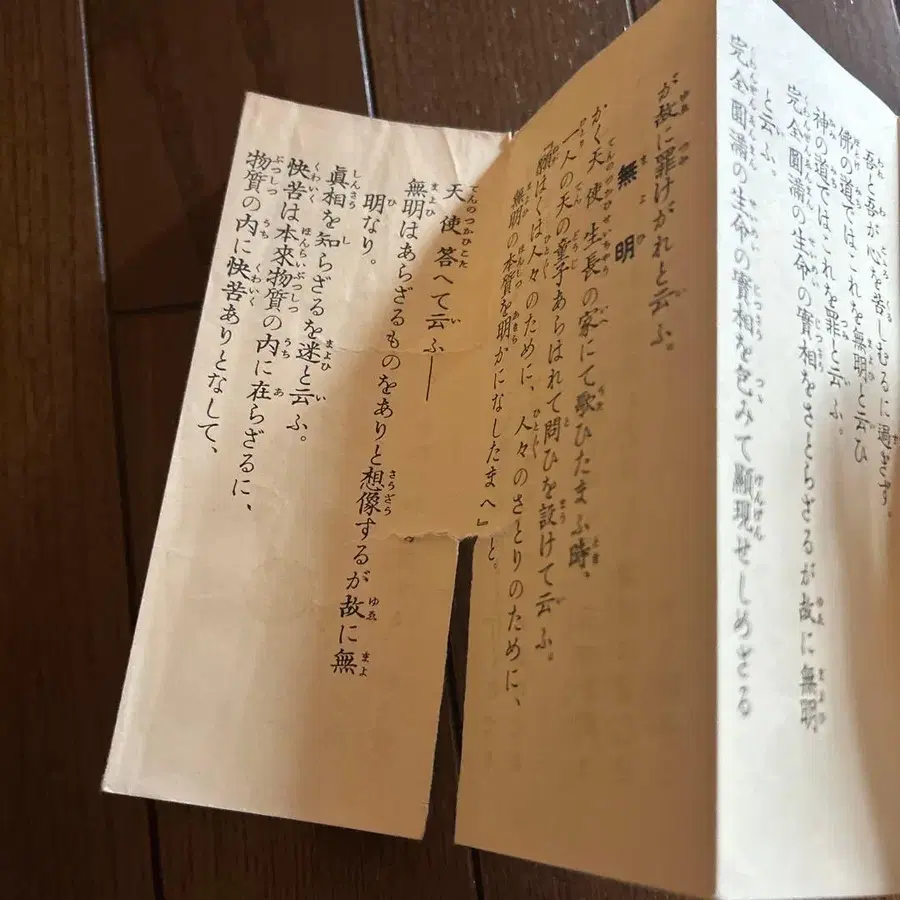 吾と吾が心を苦しむるに過ぎず。
佛の道ではこれを無明と云ひ
神の道ではこれを罪と云ふ。
完全圓滿の生命の實相をさとらざるが故に無明
と云ふ。
完全圓滿の生命の實相を包みて顯現せしめざる
が故に罪けがれと云ふ。
無明
かく天使生長の家にて歌ひたまふ時、
一人の天の童子あらはれて問ひを設けて云ふ。
『願はくは人々のために、人々のさとりのために、
無明の本質を明かになしたまへ』と。
天使答へて云ふ――
無明はあらざるものをありと想像するが故に無
明なり。
眞相を知らざるを迷と云ふ。
快苦は本来物質の内に在らざるに、
物質の内に快苦ありとなして、